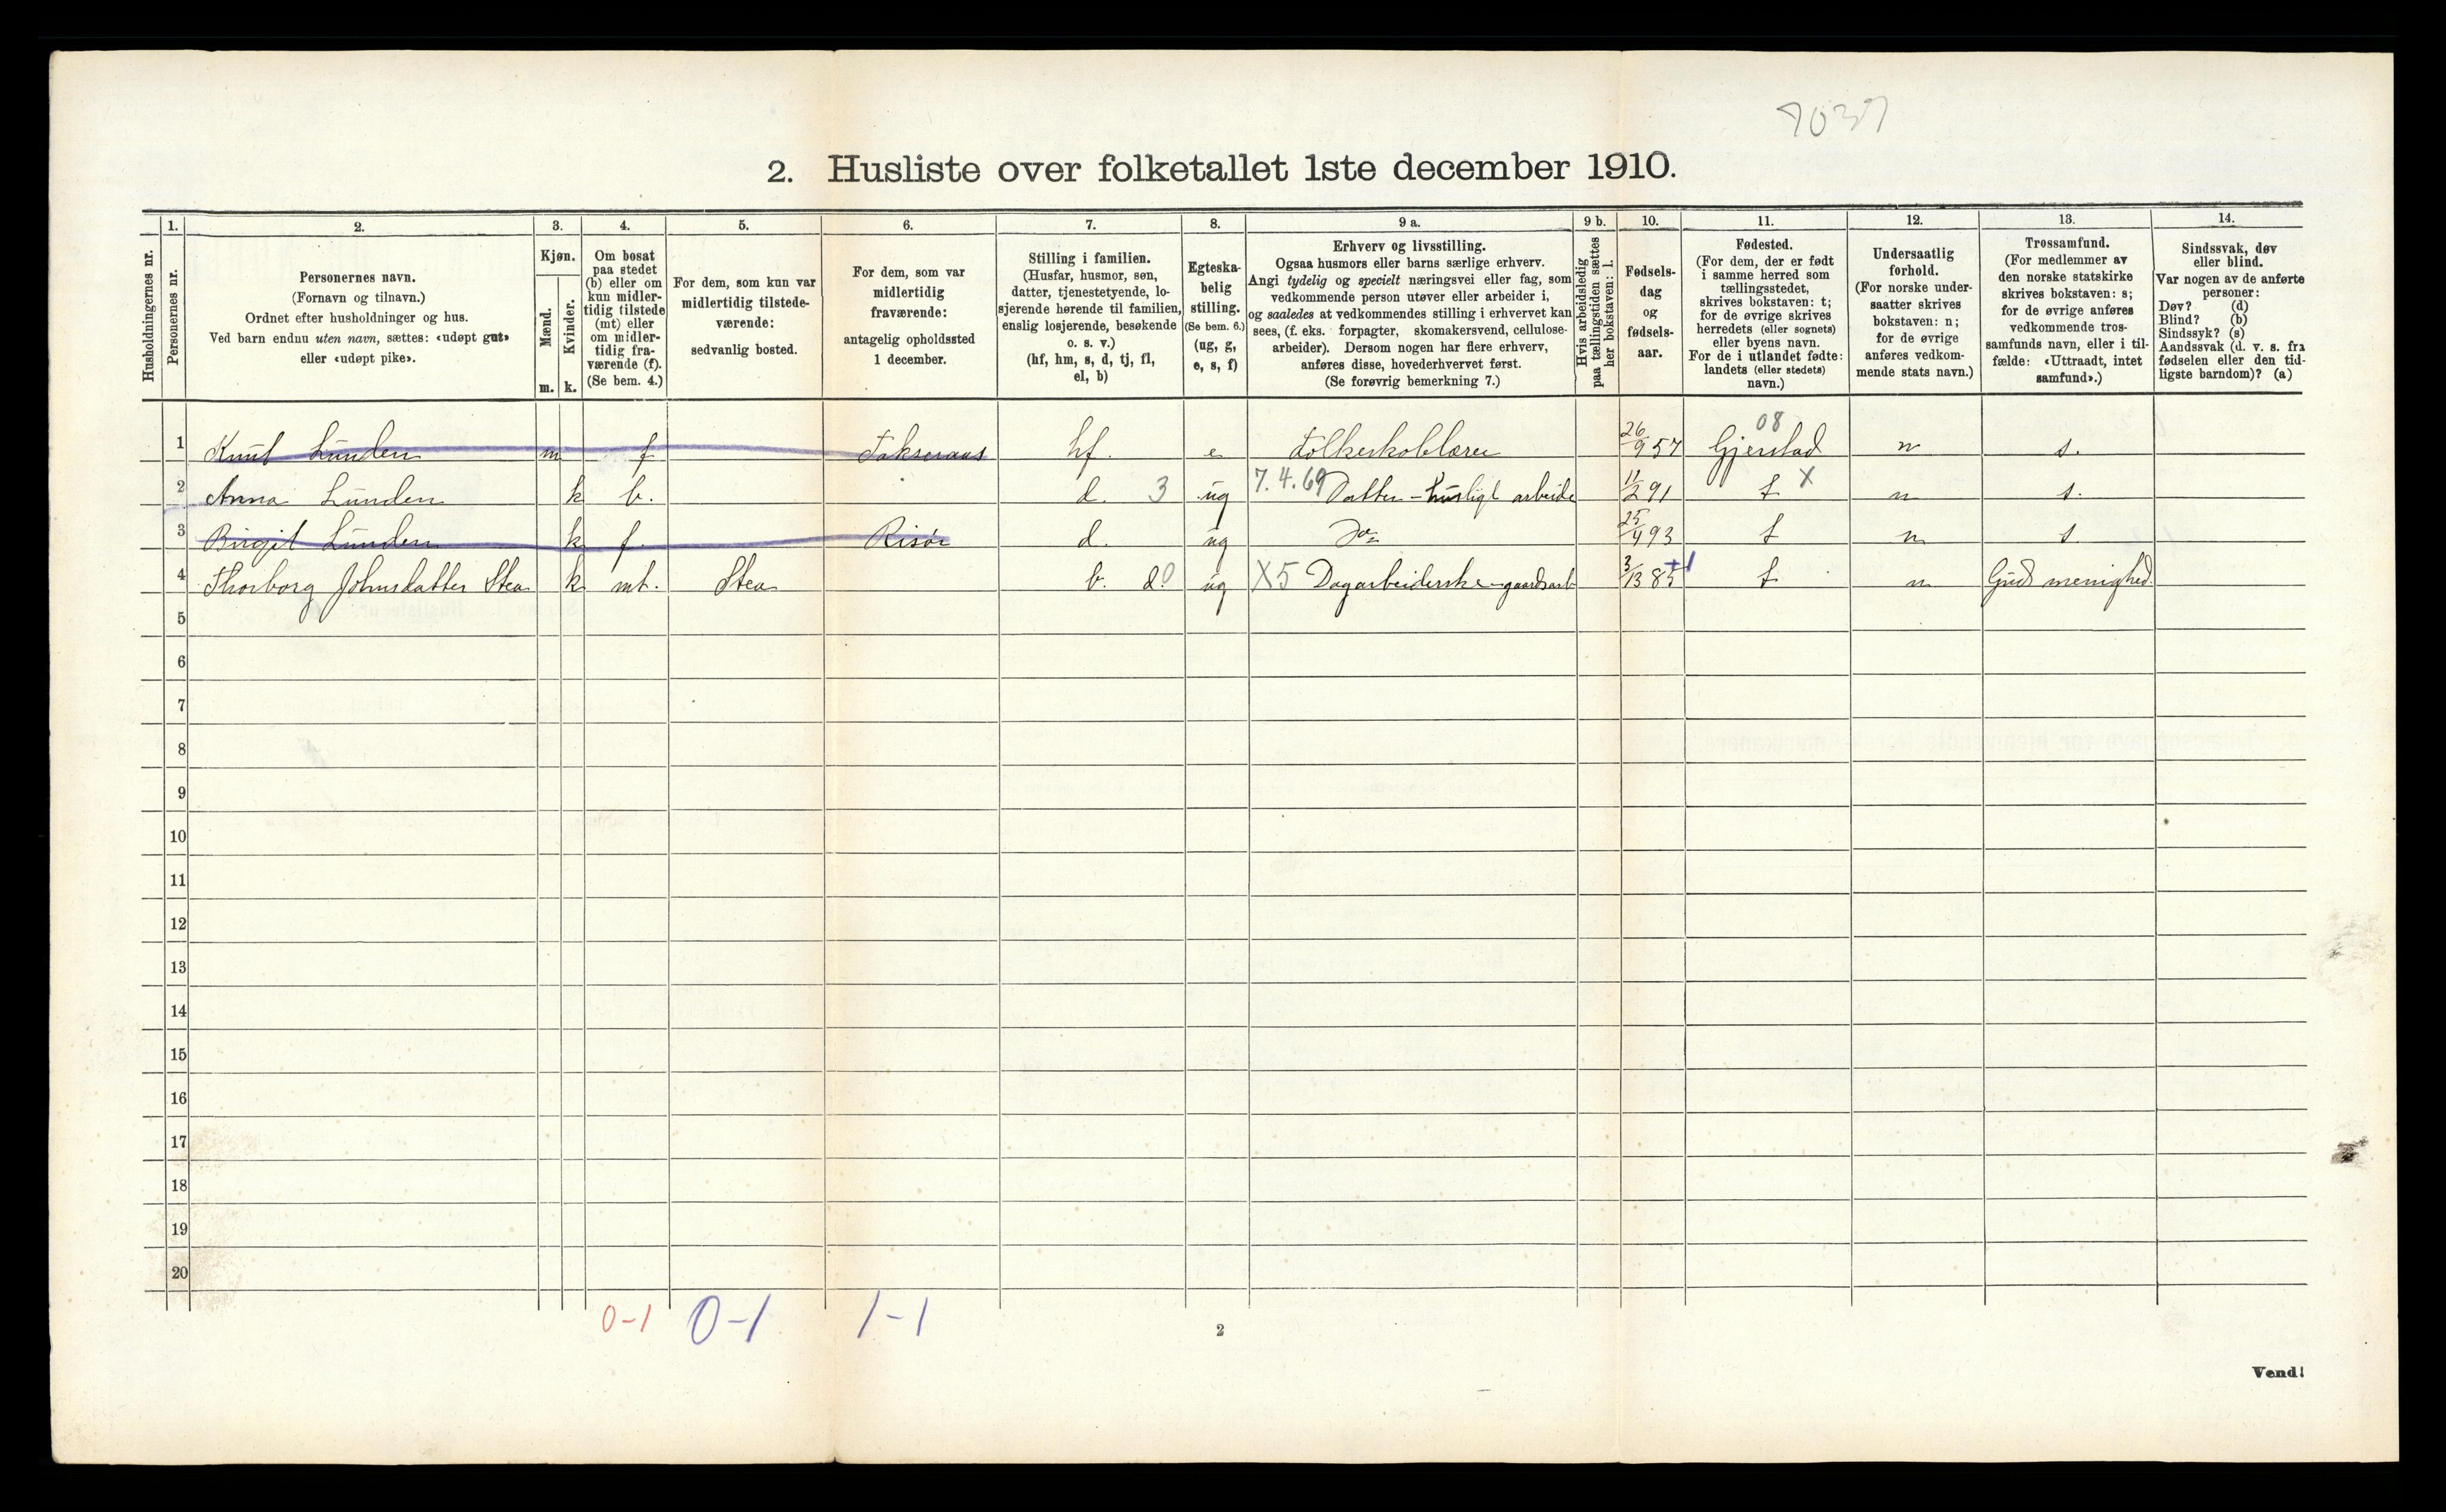 7037
2. Husliste over folketallet 1ste december 1910.
Husholdningernes nr.
1.
Personernes nr.
2.
Personernes navn.
(Fornavn og tilnavn.)
Ordnet efter husholdninger og hus.
Ved barn endnu uten navn, sættes: «udøpt gut»
eller «udøpt pike».
3.
Kjøn.
Mænd.
Kvinder.
m. k.
4.
Om bosat
paa stedet
(b) eller om
kun midler-
tidig tilstede
(mt) eller
om midler-
tidig fra-
værende (f).
(Se bem. 4.)
5.
For dem, som kun var
midlertidig tilstede-
værende:
sedvanlig bosted.
6.
For dem, som var
midlertidig
fraværende:
antagelig opholdssted
1 december.
7.
Stilling i familien.
(Husfar, husmor, søn,
datter, tjenestetyende, lo-
sjerende hørende til familien,
enslig losjerende, besøkende
o. s. v.)
(hf, hm, s, d, tj, fl,
el, b)
8.
Egteska-
belig
stilling.
(Se bem. 6.)
(ug, g,
e, s, f)
9 a.
Erhverv og livsstilling.
Ogsaa husmors eller barns særlige erhverv.
Angi tydelig og specielt næringsvei eller fag, som
vedkommende person utøver eller arbeider i,
og saaledes at vedkommendes stilling i erhvervet kan
sees, (f. eks. forpagter, skomakersvend, cellulose-
arbeider). Dersom nogen har flere erhverv,
anføres disse, hovederhvervet først.
(Se forøvrig bemerkning 7.)
9 b.
Hvis arbeidsledig
paa tællingstiden sættes
her bokstaven: l.
10.
Fødsels-
dag
og
fødsels-
aar.
11.
Fødested.
(For dem, der er født
i samme herred som
tællingsstedet,
skrives bokstaven: t;
for de øvrige skrives
herredets (eller sognets)
eller byens navn.
For de i utlandet fødte:
landets (eller stedets)
navn.)
12.
Undersaatlig
forhold.
(For norske under-
saatter skrives
bokstaven: n;
for de øvrige
anføres vedkom-
mende stats navn.)
13.
Trossamfund.
(For medlemmer av
den norske statskirke
skrives bokstaven: s;
for de øvrige anføres
vedkommende tros-
samfunds navn, eller i til-
fælde: «Uttraadt, intet
samfund».)
14.
Sindssvak, døv
eller blind.
Var nogen av de anførte
personer:
Døv? (d)
Blind? (b)
Sindssyk? (s)
Aandssvak (d. v. s. fra
fødselen eller den tid-
ligste barndom)? (a)
08
1 Knut Lunden m f hf. e Folkeskolelærer 26/9 57 Gjerstad n s.
2 Anna Lunden k b. d. 3 ug 7.4.69 Datter - husligt arbeide 11/2 91 t X n s.
3 Birgit Lunden k f Risør d. ug Do 25/4 93 t n s
4 Thorborg Johnsdatter Stea k mt. Stea b. d? ug X5 Dagarbeiderske - gaardsarb 3/13 85 +1 t n Gud menighed.
5
6
7
8
9
10
11
12
13
14
15
16
17
18
19
20
0-1 0-1 1-1
2
Vend!